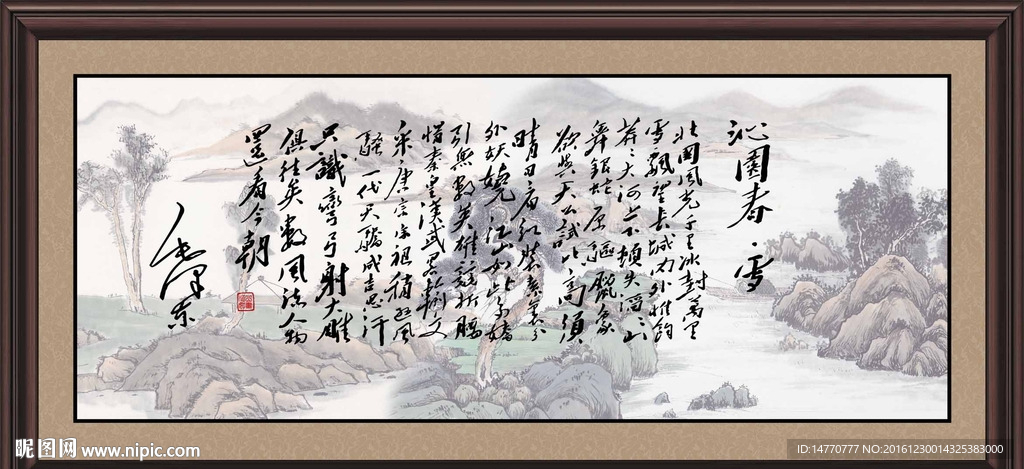 沁園春·雪
北國風光千里冰封萬里
雪飄望長城內外惟餘
莽々大河上下頓失滔々山
舞銀蛇原驅臘象
欲與天公試比高須
晴日看紅裝素裹分
外妖嬈江山如此多嬌
引無數英雄競折腰
惜秦皇漢武略輸文
采唐宗宋祖稍遜風
騷一代天驕成吉思汗
只識彎弓射大雕
俱往矣數風流人物
還看今朝
毛澤東
昵图网 www.nipic.com
ID:14770777 NO:20161230014325383000